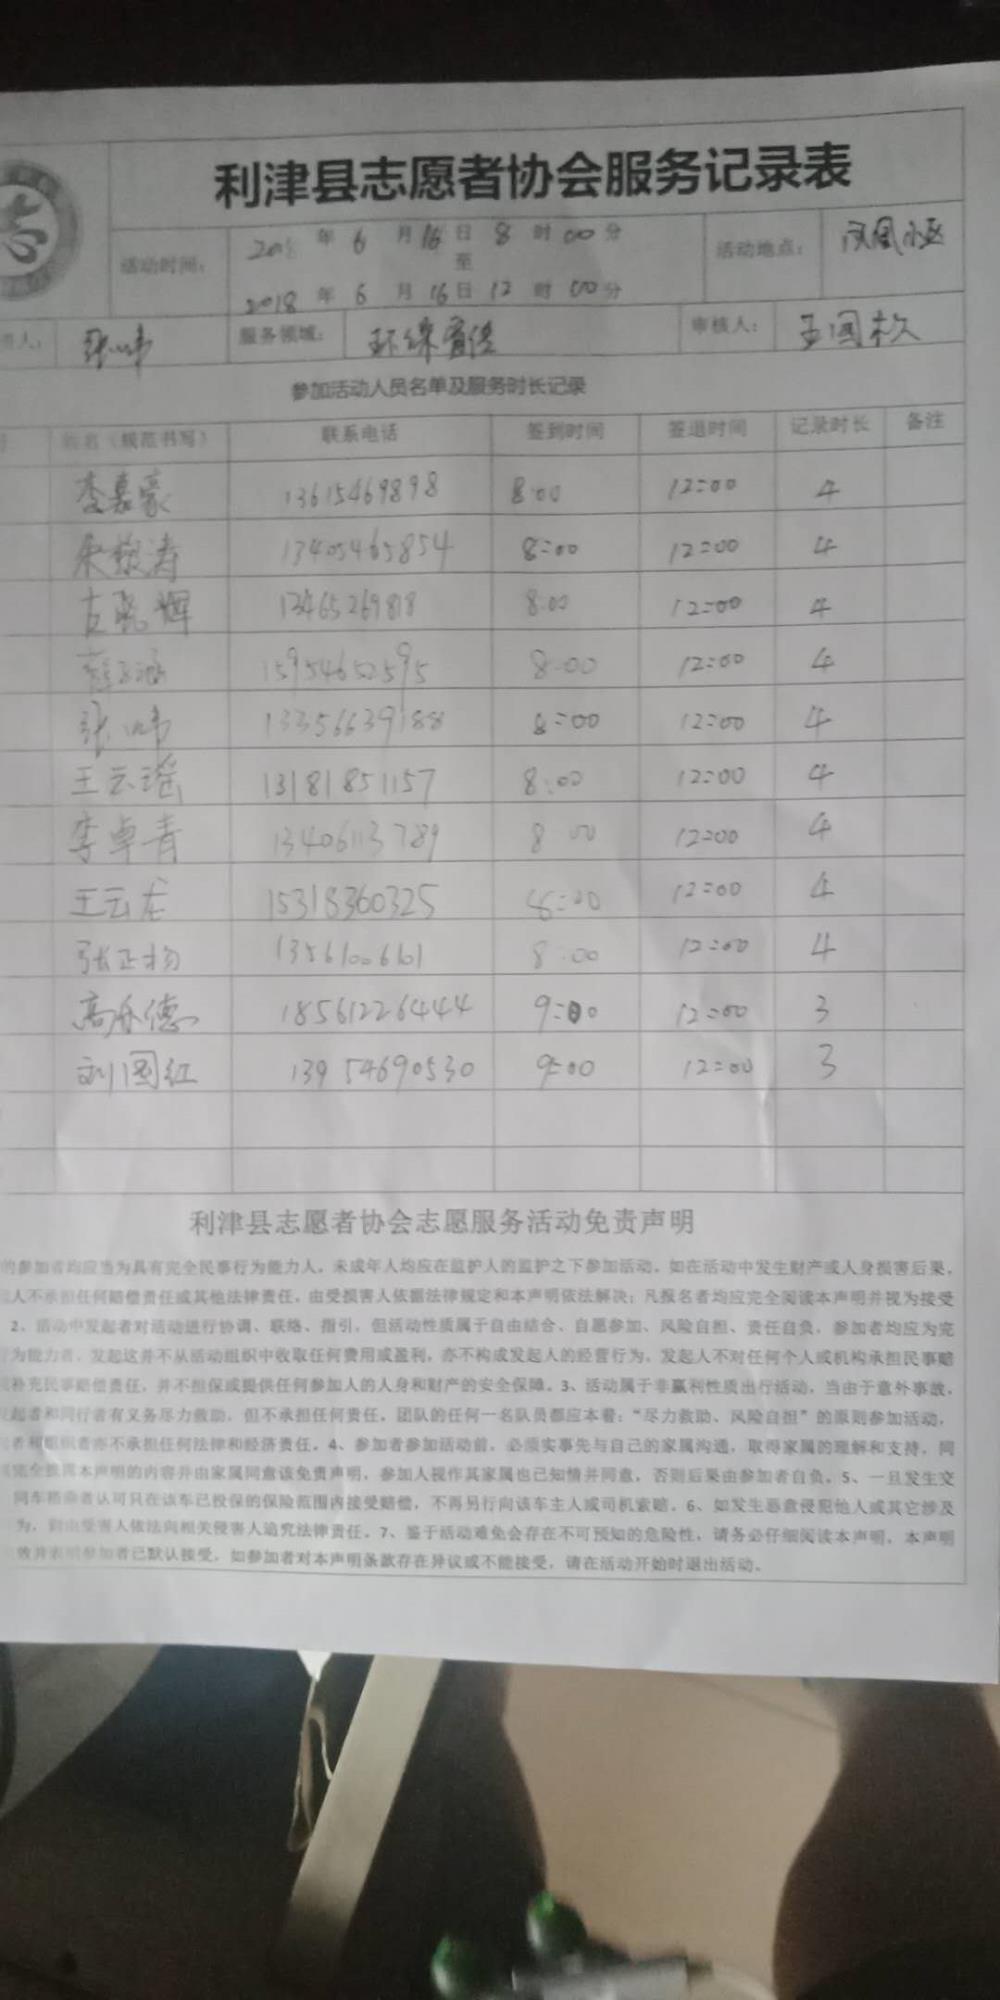 利津县志愿者协会服务记录表
志
活动时间： 2018 年 6 月 16 日 8 时 00 分
至
2018 年 6 月 16 日 12 时 00 分
活动地点： 凤凰小区
责人： 张帅 服务领域： 环保宣传 审核人： 王国栋
参加活动人员名单及服务时长记录
姓名（规范书写） 联系电话 签到时间 签退时间 记录时长 备注
李嘉豪 13615469898 8:00 12:00 4
13405465854 8:00 12:00 4
13465269818 8:00 12:00 4
15954652595 8:00 12:00 4
张帅 13356639188 8:00 12:00 4
王云瑶 13181851157 8:00 12:00 4
李卓青 13406113789 8 00 12:00 4
王云龙 15318360325 12:00 4
张正扬 13561006101 8:00 12:00 4
高乐德 18561226444 9:00 12:00 3
刘国红 13954690530 9:00 12:00 3
利津县志愿者协会志愿服务活动免责声明
的参加者均应当为具有完全民事行为能力人，未成年人均应在监护人的监护之下参加活动，如在活动中发生财产或人身损害后果，
人不承担任何赔偿责任或其他法律责任，由受损害人依据法律规定和本声明依法解决；凡报名者均应完全阅读本声明并视为接受
2、活动中发起者对活动进行协调、联络、指引，但活动性质属于自由结合、自愿参加、风险自担、责任自负，参加者均应为完
为能力者，发起这并不从活动组织中收取任何费用或盈利，亦不构成发起人的经营行为，发起人不对任何个人或机构承担民事赔
补充民事赔偿责任，并不担保或提供任何参加人的人身和财产的安全保障。3、活动属于非赢利性质出行活动，当由于意外事故，
起者和同行者有义务尽力救助，但不承担任何责任，团队的任何一名队员都应本着：“尽力救助、风险自担”的原则参加活动，
者和组织者亦不承担任何法律和经济责任。4、参加者参加活动前，必须实事先与自己的家属沟通，取得家属的理解和支持，同
完全推荐本声明的内容并由家属同意该免责声明，参加人视作其家属也已知情并同意，否则后果由参加者自负。5、一旦发生交
同车搭乘者认可只在该车已投保的保险范围内接受赔偿，不再另行向该车主人或司机索赔。6、如发生恶意侵犯他人或其它涉及
为，则由受害人依法向相关侵害人追究法律责任。7、鉴于活动难免会存在不可预知的危险性，请务必仔细阅读本声明，本声明
效并表明参加者已默认接受，如参加者对本声明条款存在异议或不能接受，请在活动开始时退出活动。